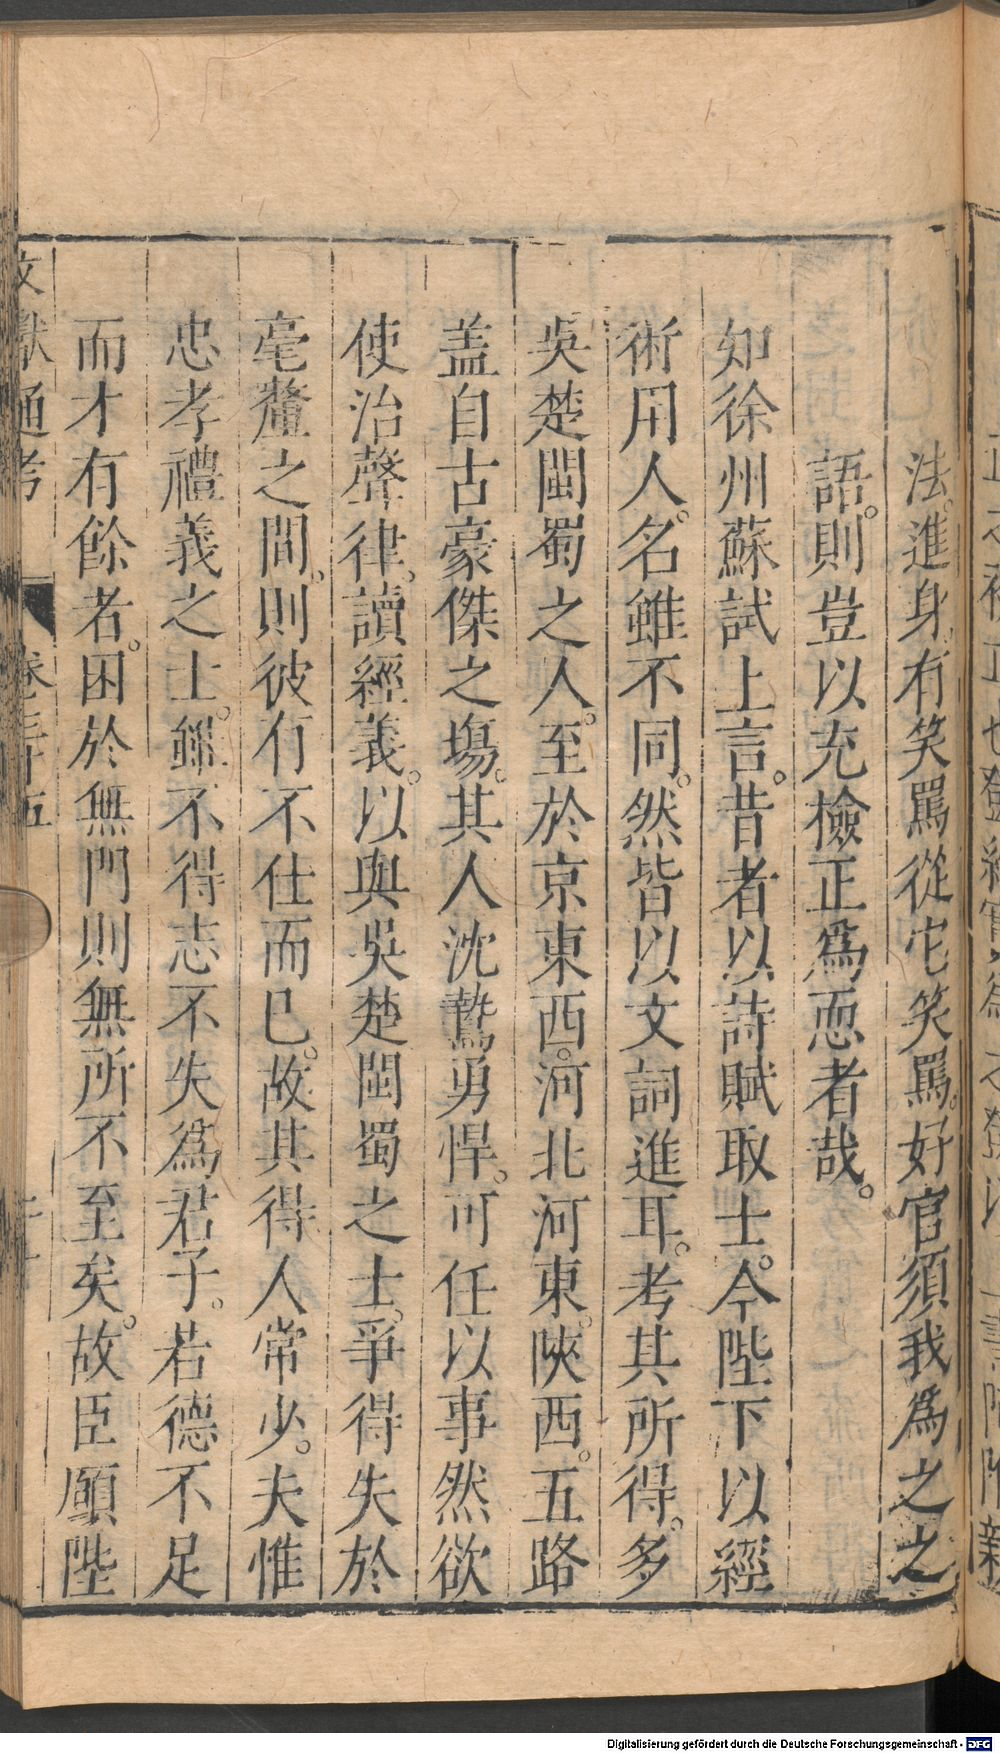 法。進身。有笑罵從它笑罵。好官須我爲之之
語。則豈以充檢正爲恧者哉。
知徐州蘇試上言。昔者以詩賦取士。今陛下以經
術用人。名雖不同。然皆以文詞進耳。考其所得。多
吳楚閩蜀之人。至於京東西。河北河東。陝西。五路
盖自古豪傑之塲。其人沈鷙勇悍。可任以事然欲
使治聲律。讀經義。以與吳楚閩蜀之士。爭得失於
毫釐之間。則彼有不仕而已。故其得人常少。夫惟
忠孝禮義之士。雖不得志不失爲君子。若德不足
而才有餘者。困於無門則無所不至矣。故臣願陛
文獻通考 卷三十五
Digitalisierung gefördert durch die Deutsche Forschungsgemeinschaft - DFG